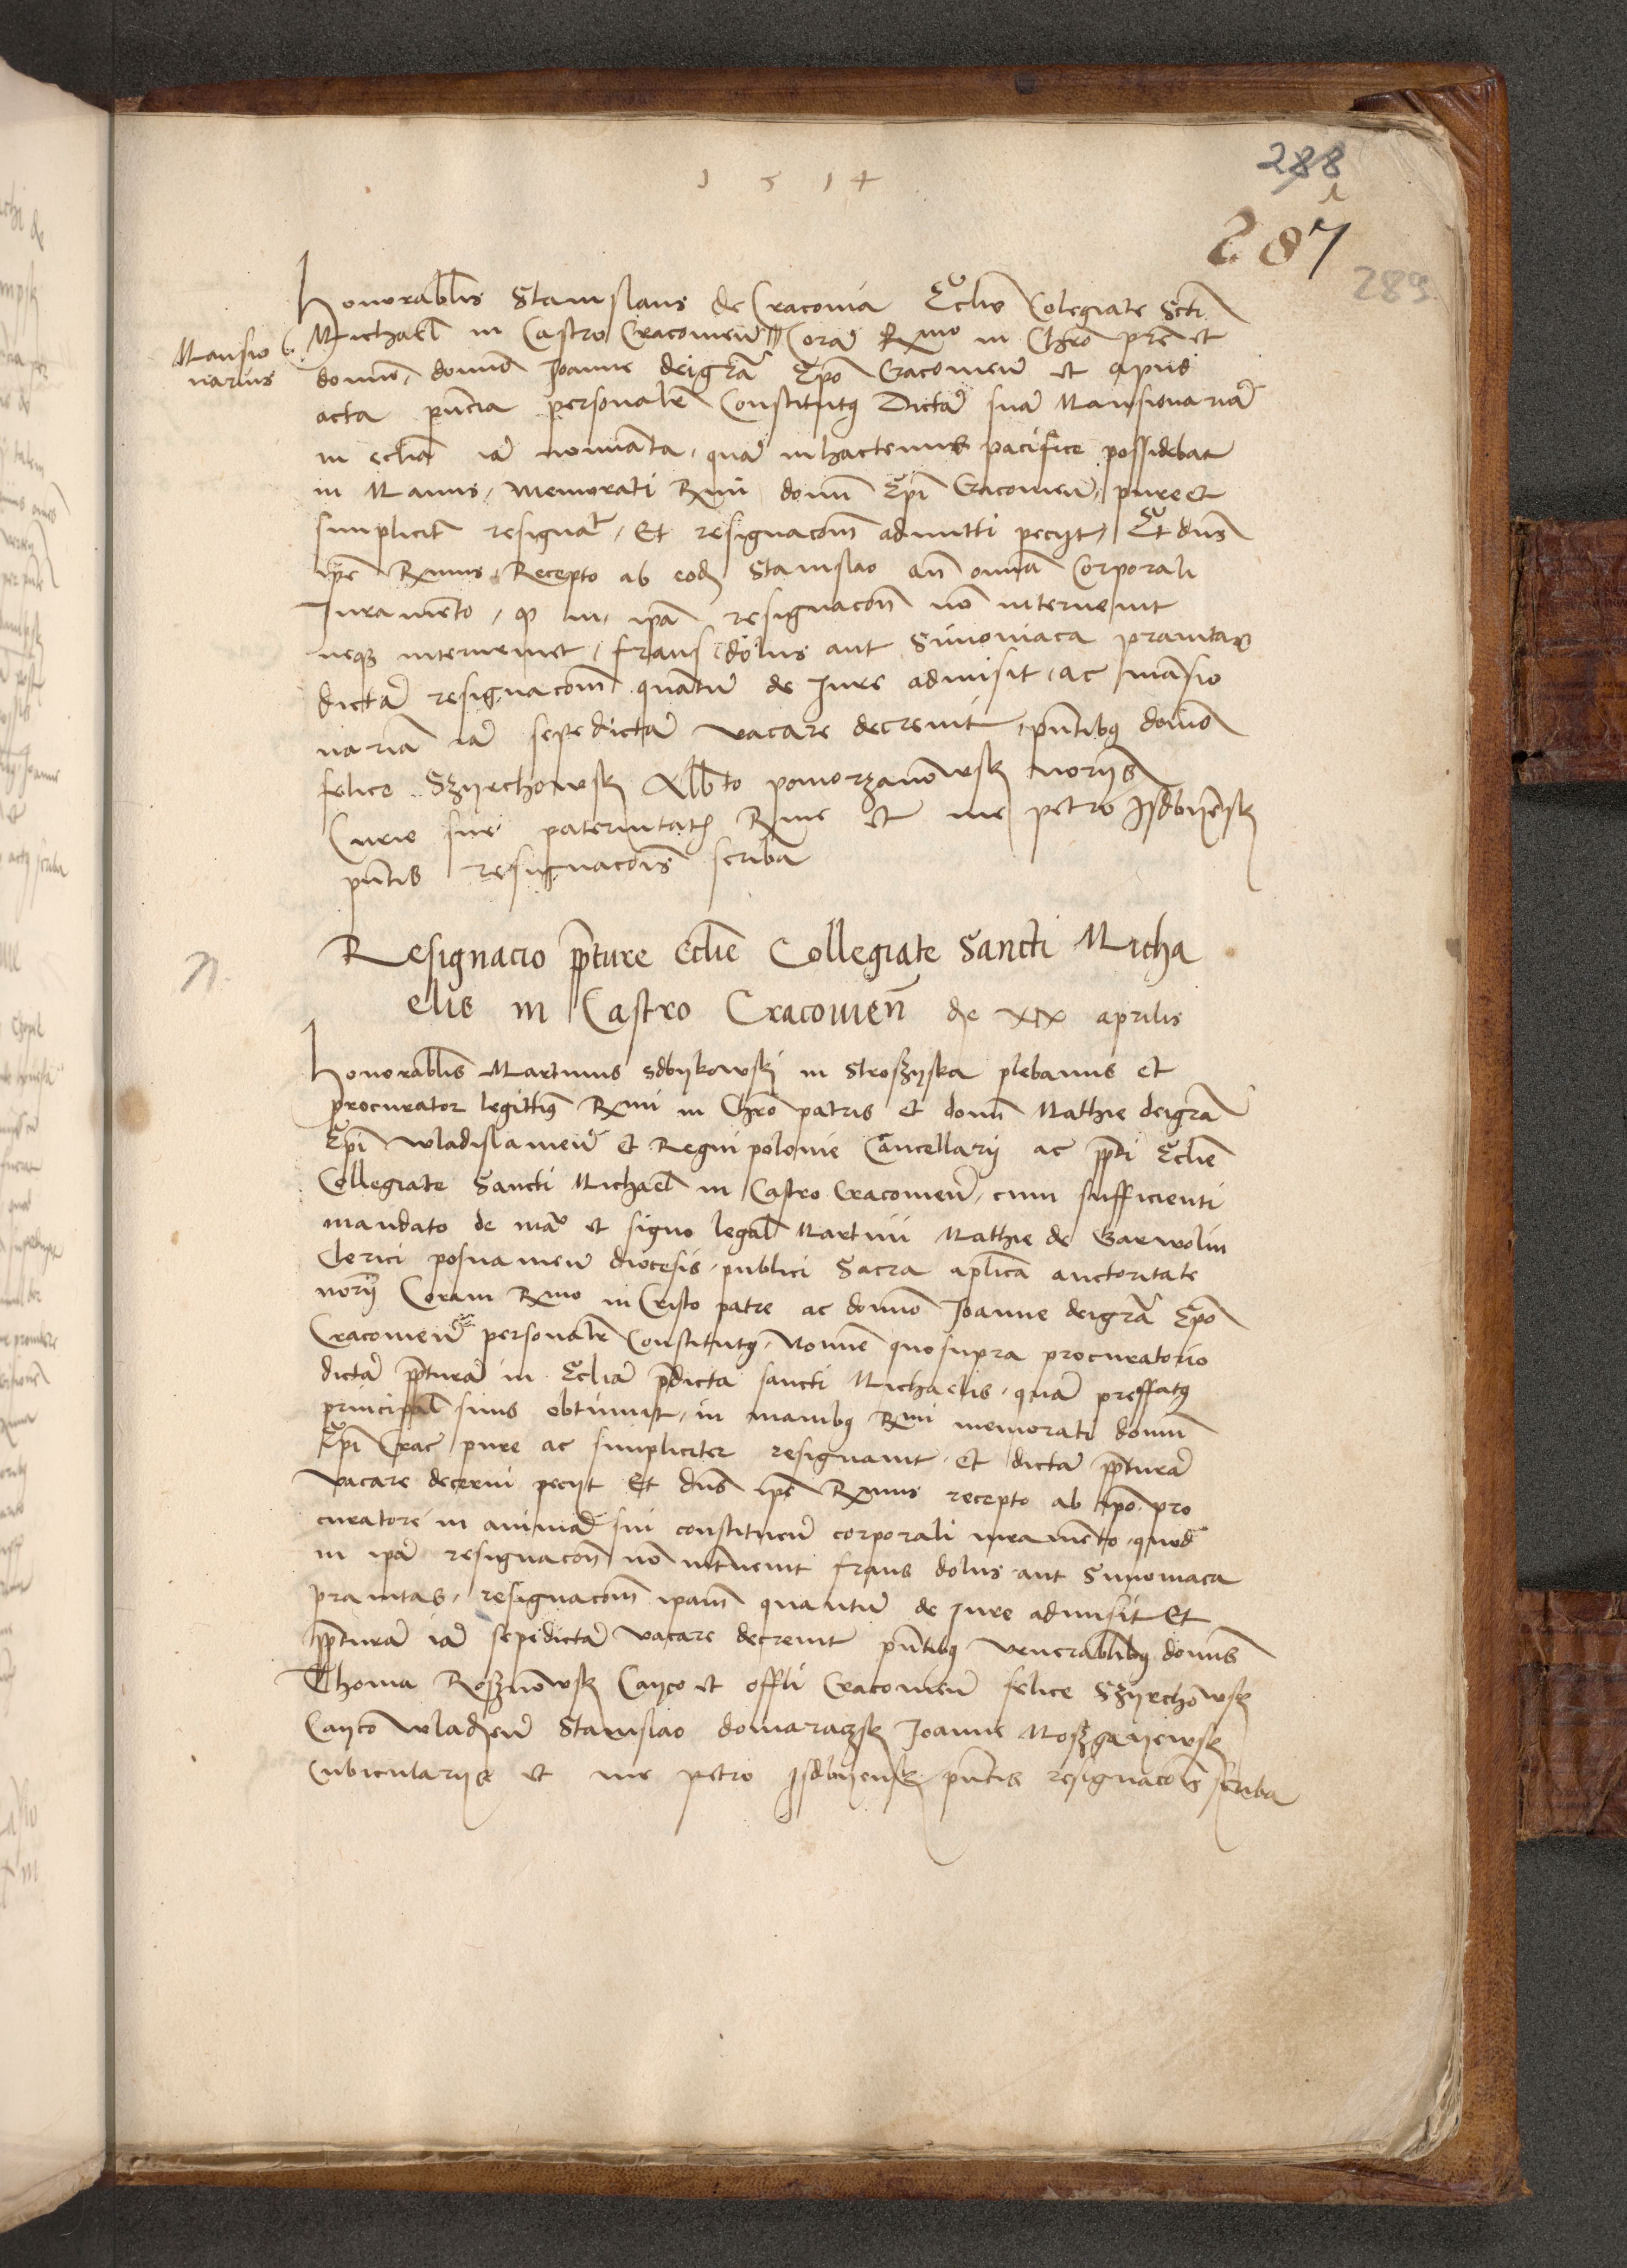 1514
288
287
289
Honorablis Stanislaus de Cracovia Eclie Colegiate Scti
Mansio
narius
Michael in Castro Cracovien Cora Rmo in Chro pre et
domno domno Joanne dei gra Epo Cracovien et apud
acta pncia personalr Constitutus Dicta sua Mansionaria
in eclia ia nominata, qua in hactenus pacifice possidebat
in Manus memorati Rmi domni Epi Cracovien, pure et
simplicitr resignat, Et resignacom admitti peciit, Et dns
ipse Rmus Recepto ab eodem Stanislao an omnia Corporali
Juramento, quod in ipa resignacon non intervenit
neque interveniet, fraus dolus aut Simoniaca pravitas
dicta resignacom quantu de Jure admisit, ac mansio
naria ia sepedicta vacare decrevit, pntibus domno
felice Szyrchowsky Alberto pomorzanowsky noriis
Curie sue paternitatis Rme et me petro Isdbyensky
pntis resignacois scriba
Resignacio ppture Eclie Collegiate Sancti Micha
elis in Castro Cracovien de XIX aprilis
Honorablis Martinus Sdbykowski in Stroszyska plebanus et
procurator legittimus Rmi in Chro patris et domni Mathie dei gra
Epi Wladislavien et Regni polonie Cancellarii ac ppti Eclie
Collegiate Sancti Michael in Castro Cracovien, cum sufficienti
mandato de manu et signo legali Martini Mathie de Garwolin
Clerici posnanien diocesis, publici Sacra aplica auctoritate
norii Coram Rmo in Cristo patre ac domno Joanne dei gra Epo
Cracovien personalr Constitutus, Nomine quo supra procuratorio
dicta pptura in Eclia predicta sancti Michaelis, qua preffatus
principal suus obtinuit, in manibus Rmi memorati domni
Epi Crac pure ac simpliciter resignavit et dicta pptura
vacare decerni peciit Et dns ipse Rmus recepto ab ipo pro
curatore in anima sui constituen corporali iuramento, quod
in ipa resignacon non intervenit fraus dolus aut Simoniaca
pravitas, resignacom ipam quantu de Jure admisit Et
pptura ia sepedicta vacare decrevit pntibus venerablibus domnis
Thoma Rosznowsky Canco et offli Cracovien felice Szyrchowsky
Canco Wladien Stanislao domaraczsky Joanne
Cubiculariis et me petro Isdbyensky pntis resignacois scriba